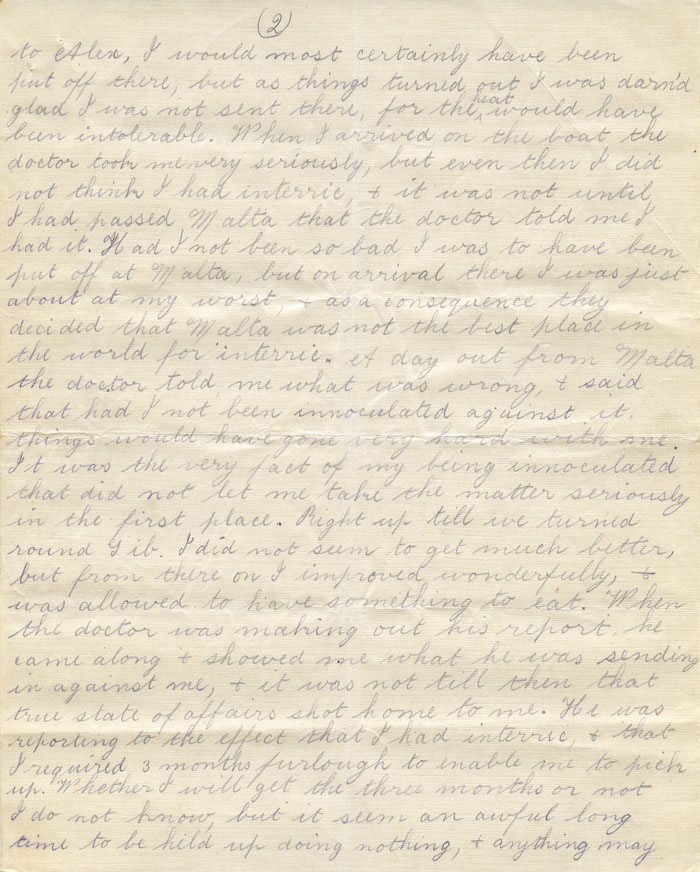 (2)
to Alex, I would most certainly have been
put off there, but as things turned out I was darn'd
glad I was not sent there, for the heat would have
been intolerable. When I arrived on the boat the
doctor took me very seriously, but even then I did
not think I had interric, & it was not until
I had passed Malta that the doctor told me I
had it. Had I not been so bad I was to have been
put off at Malta, but on arrival there I was just
about at my worst, & as a consequence they
decided that Malta was not the best place in
the world for interric. A day out from Malta
the doctor told me what was wrong, & said
that had I not been innoculated against it,
things would have gone very hard with me.
It was the very fact of my being innoculated
that did not let me take the matter seriously
in the first place. Right up till we turned
round Gib. I did not seem to get much better,
but from there on I improved wonderfully, &
was allowed to have something to eat. When
the doctor was making out his report, he
came along & showed me what he was sending
in against me, & it was not till then that
true state of affairs shot home to me. He was
reporting to the effect that I had interric, & that
I required 3 months furlough to enable me to pick
up. Whether I will get the three months or not
I do not know, but it seem an awful long
time to be held up doing nothing, & anything may